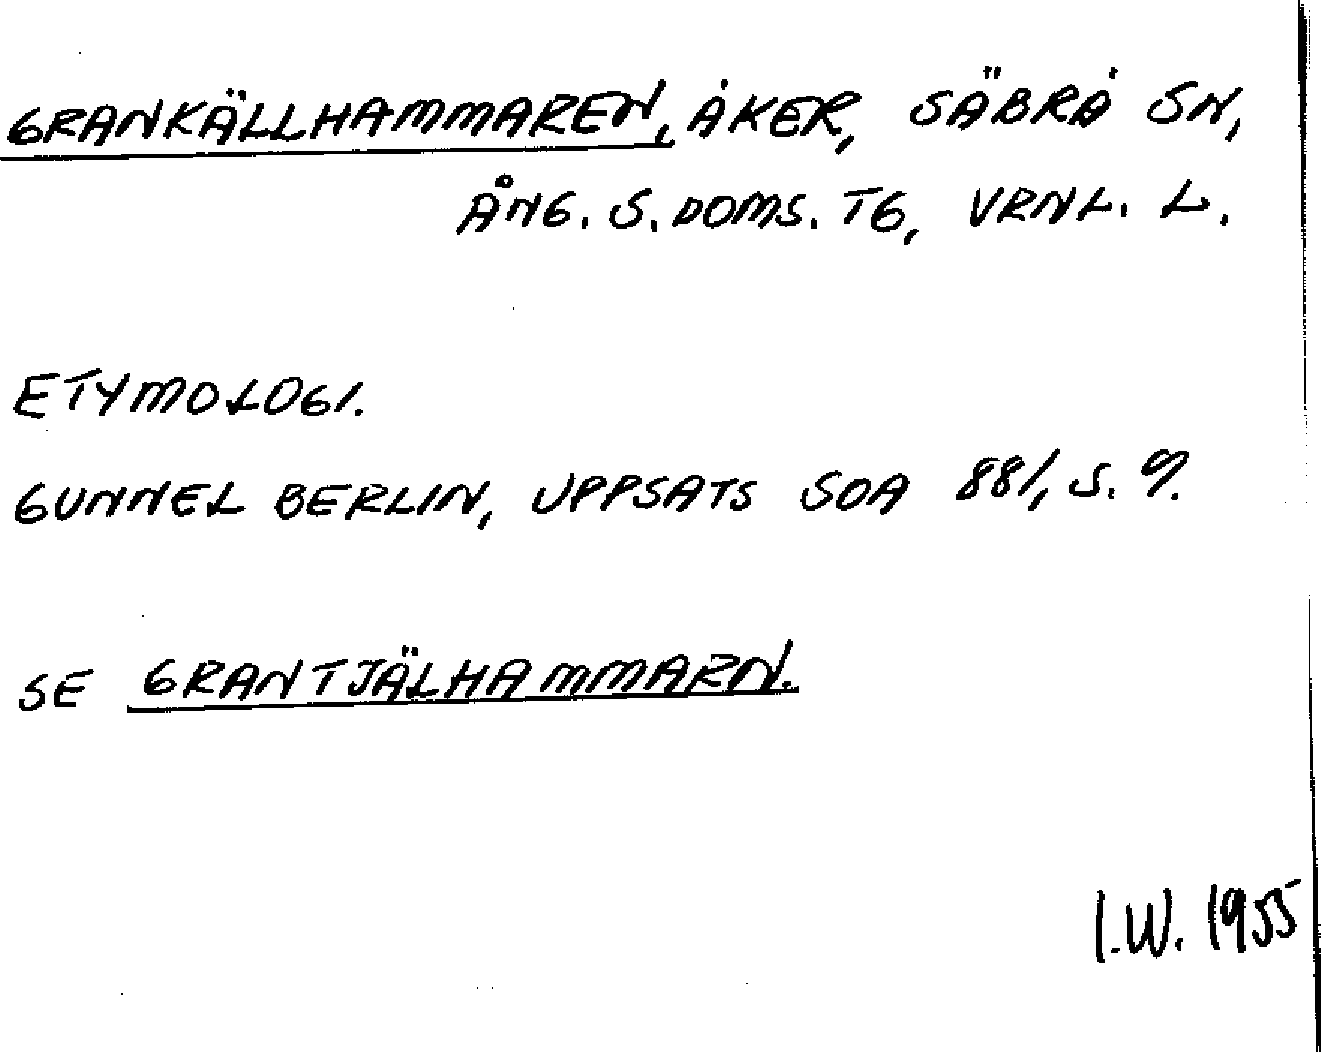 GRANKÄLLHAMMAREN, ÅKER, SÄBRÅ SN,
ÅNG. S. DOMS. TG, VRNL. L.
ETYMOLOGI.
GUNNEL BERLIN, UPPSATS SOA 881, S. 9.
SE GRANTJÄLHAMMARN.
I.W. 1955